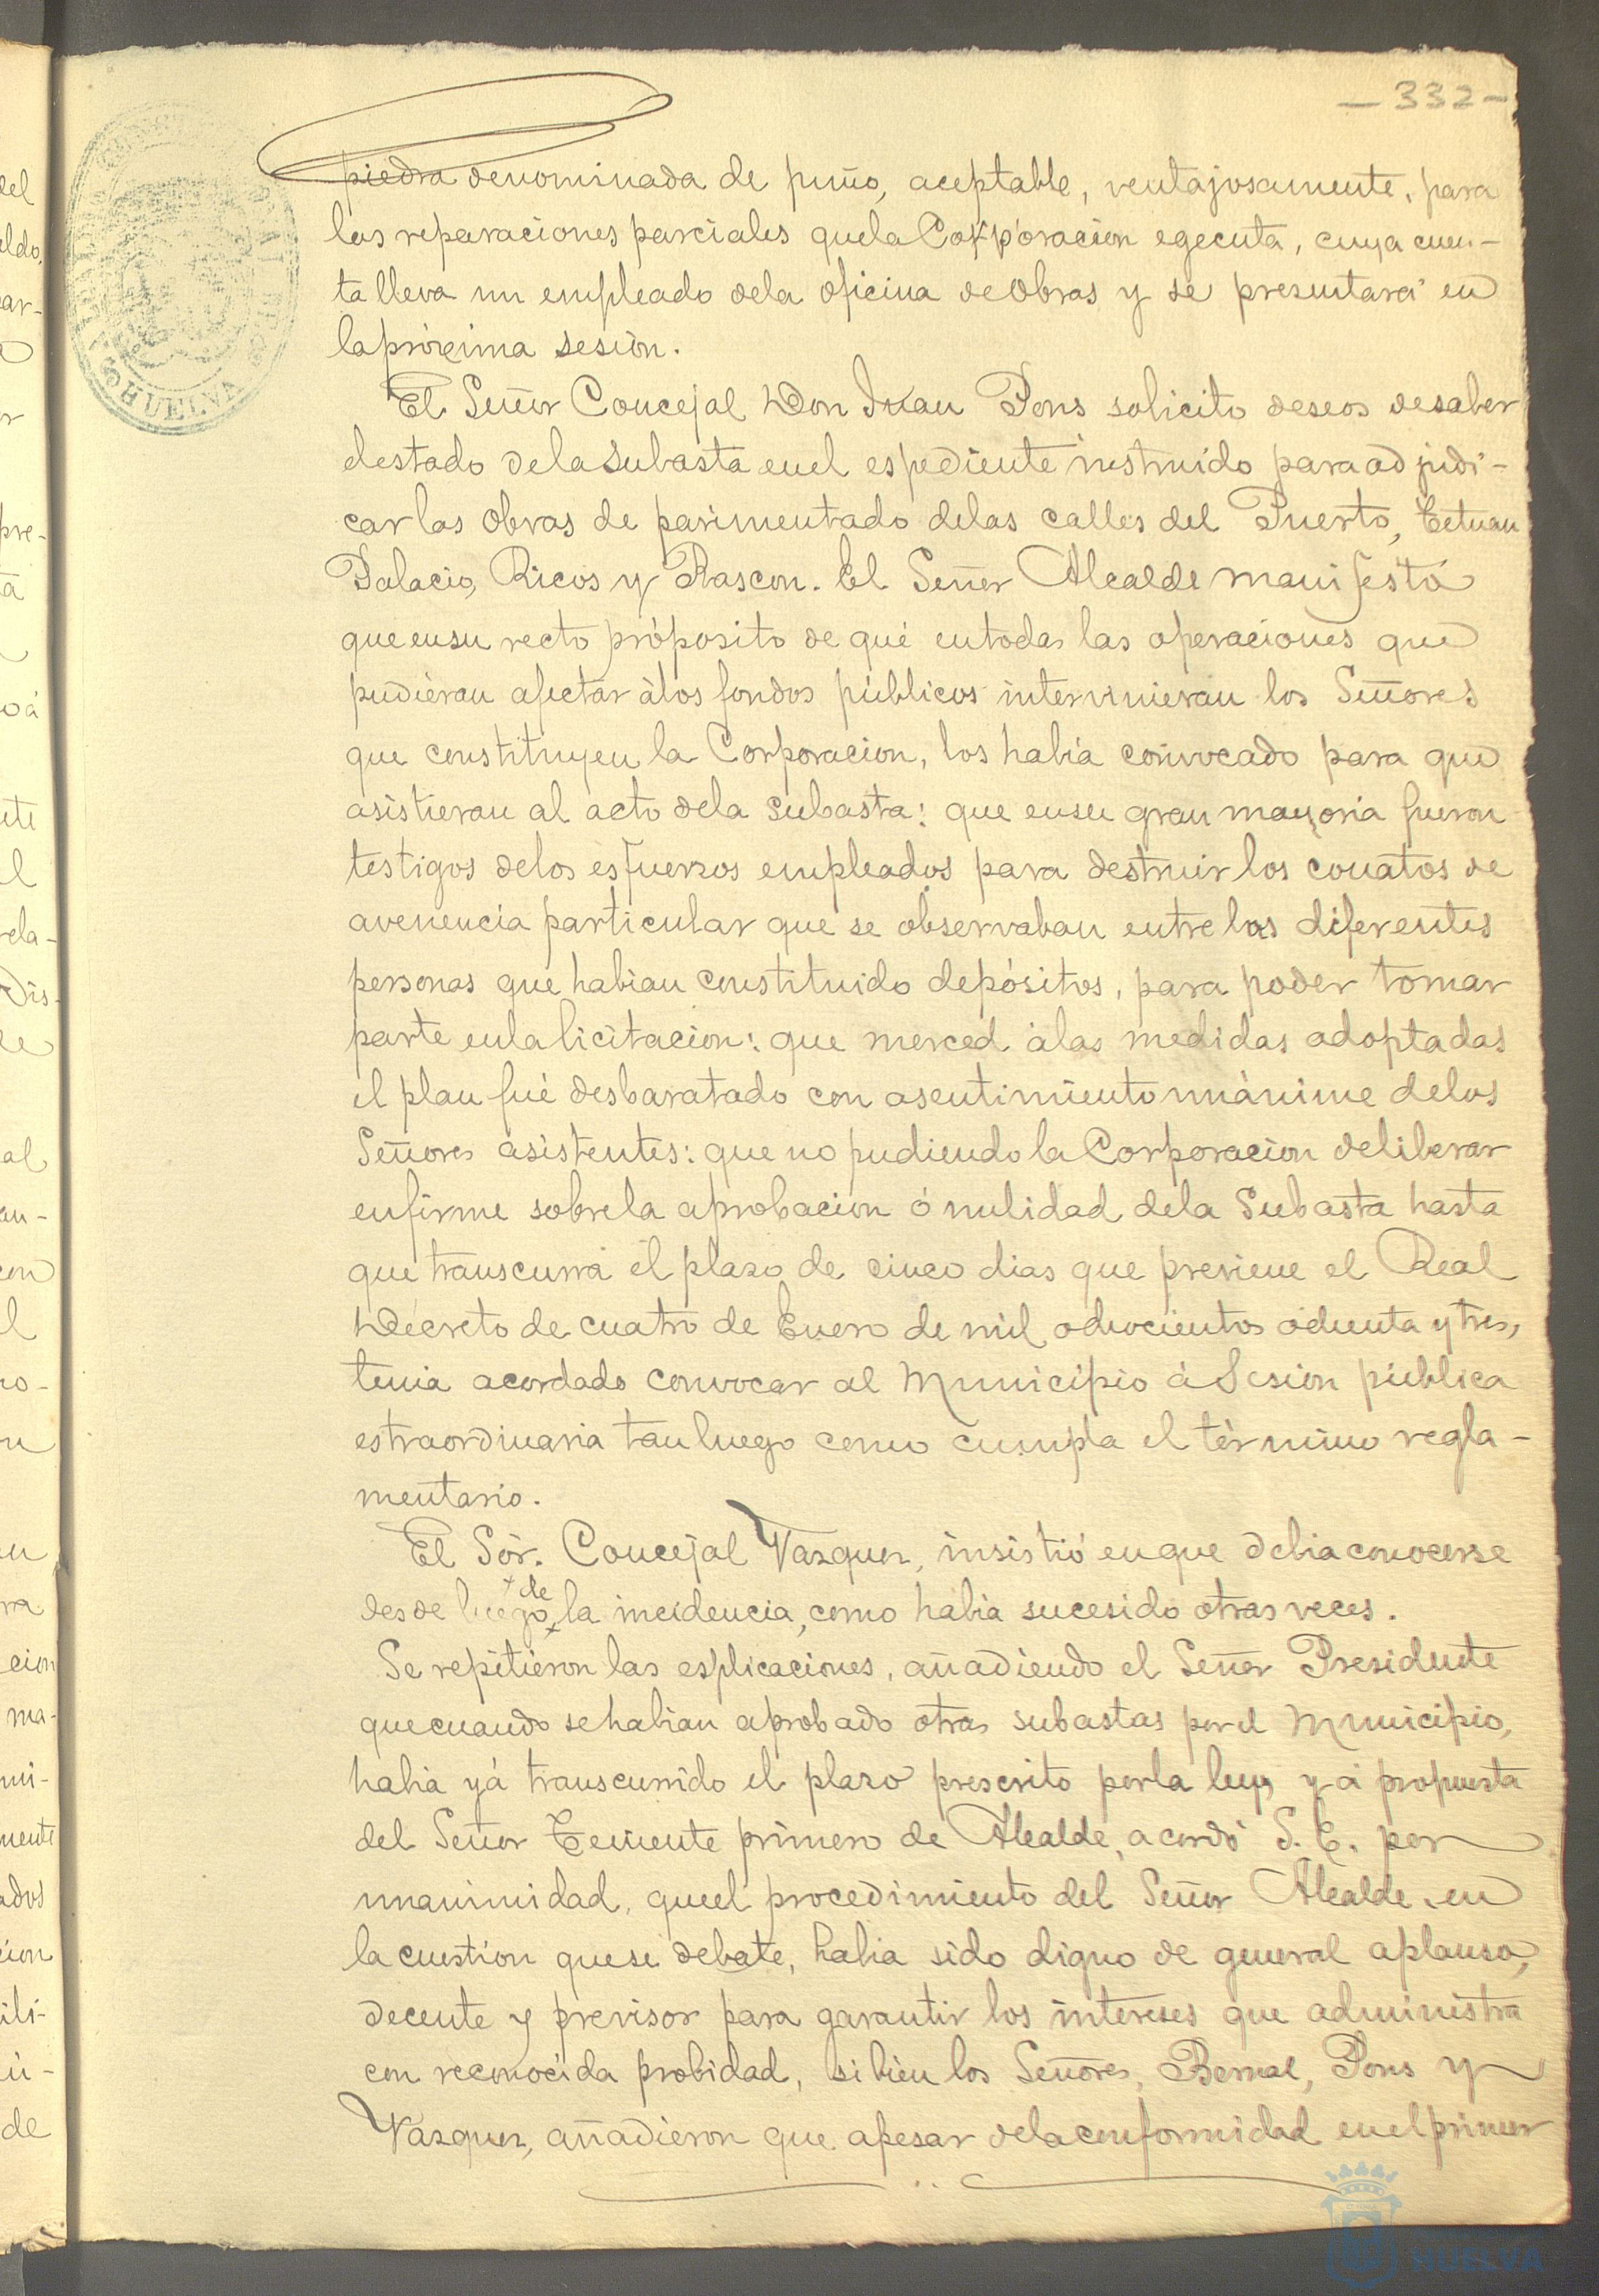 — 332 —
piedra denominada de puño, aceptable, ventajosamente, para
las reparaciones parciales que la Corporacion egecuta, cuya cuen-
ta lleva un empleado dela oficina de Obras y se presentará en
la próxima sesión.
El Señor Concejal Don Juan Pons solicito deseos de saber
el estado dela Subasta en el espediente instruido para adjudi-
car las Obras de pavimentado delas calles del Puerto, Tetuan
Palacio, Ricos y Rascon. El Señor Alcalde manifestó
que en su recto próposito de qué en todas las operaciones que
pudieran afectar à los fondos públicos intervinieran los Señores
que constituyen la Corporacion, los habia convocado para que
asistieran al acto dela Subasta: que en su gran mayoria fueron
testigos delos esfuerzos empleados para destruir los conatos de
avenencia particular que se observaban entre las diferentes
personas que habian constituido depósitos, para poder tomar
parte en la licitacion: que merced á las medidas adoptadas
el plan fué desbaratado con asentimiento unánime delos
Señores asistentes: que no pudiendo la Corporacion deliberar
en firme sobre la aprobacion ó nulidad dela Subasta hasta
que transcurra el plazo de cinco dias que previene el Real
Decreto de cuatro de Enero de mil ochocientos ochenta y tres,
tenia acordado convocar al Municipio á Sesion pública
estraordinaria tan luego como cumpla el término regla-
mentario.
El Sór. Concejal Vazquez, insistió en que debia conocerse
de
desde luego la incidencia, como habia sucesido otras veces.
Se repitieron las esplicaciones, añadiendo el Señor Presidente
que cuando se habian aprobado otras subastas por el Municipio,
habia yá transcurrido el plazo prescrito por la ley, y á propuesta
del Señor Teniente primero de Alcalde, acordó S. E. por
unanimidad, que el procedimiento del Señor Alcalde en
la cuestion que se debate, habia sido digno de general aplauso,
decente y previsor para garantir los intereses que administra
con reconocida probidad, si bien los Señores, Bernal, Pons y
Vazquez, añadieron que apesar dela conformidad en el primer
HUELVA
HUELVA